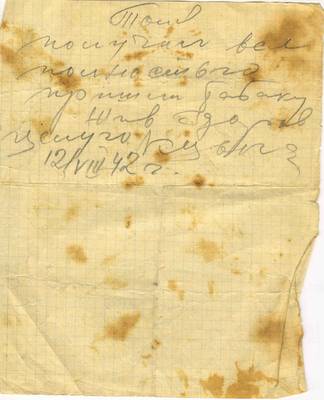 Тоня
получил все
полностью
пришли табаку
Жив здоров
целую
12/VIII 42 г.